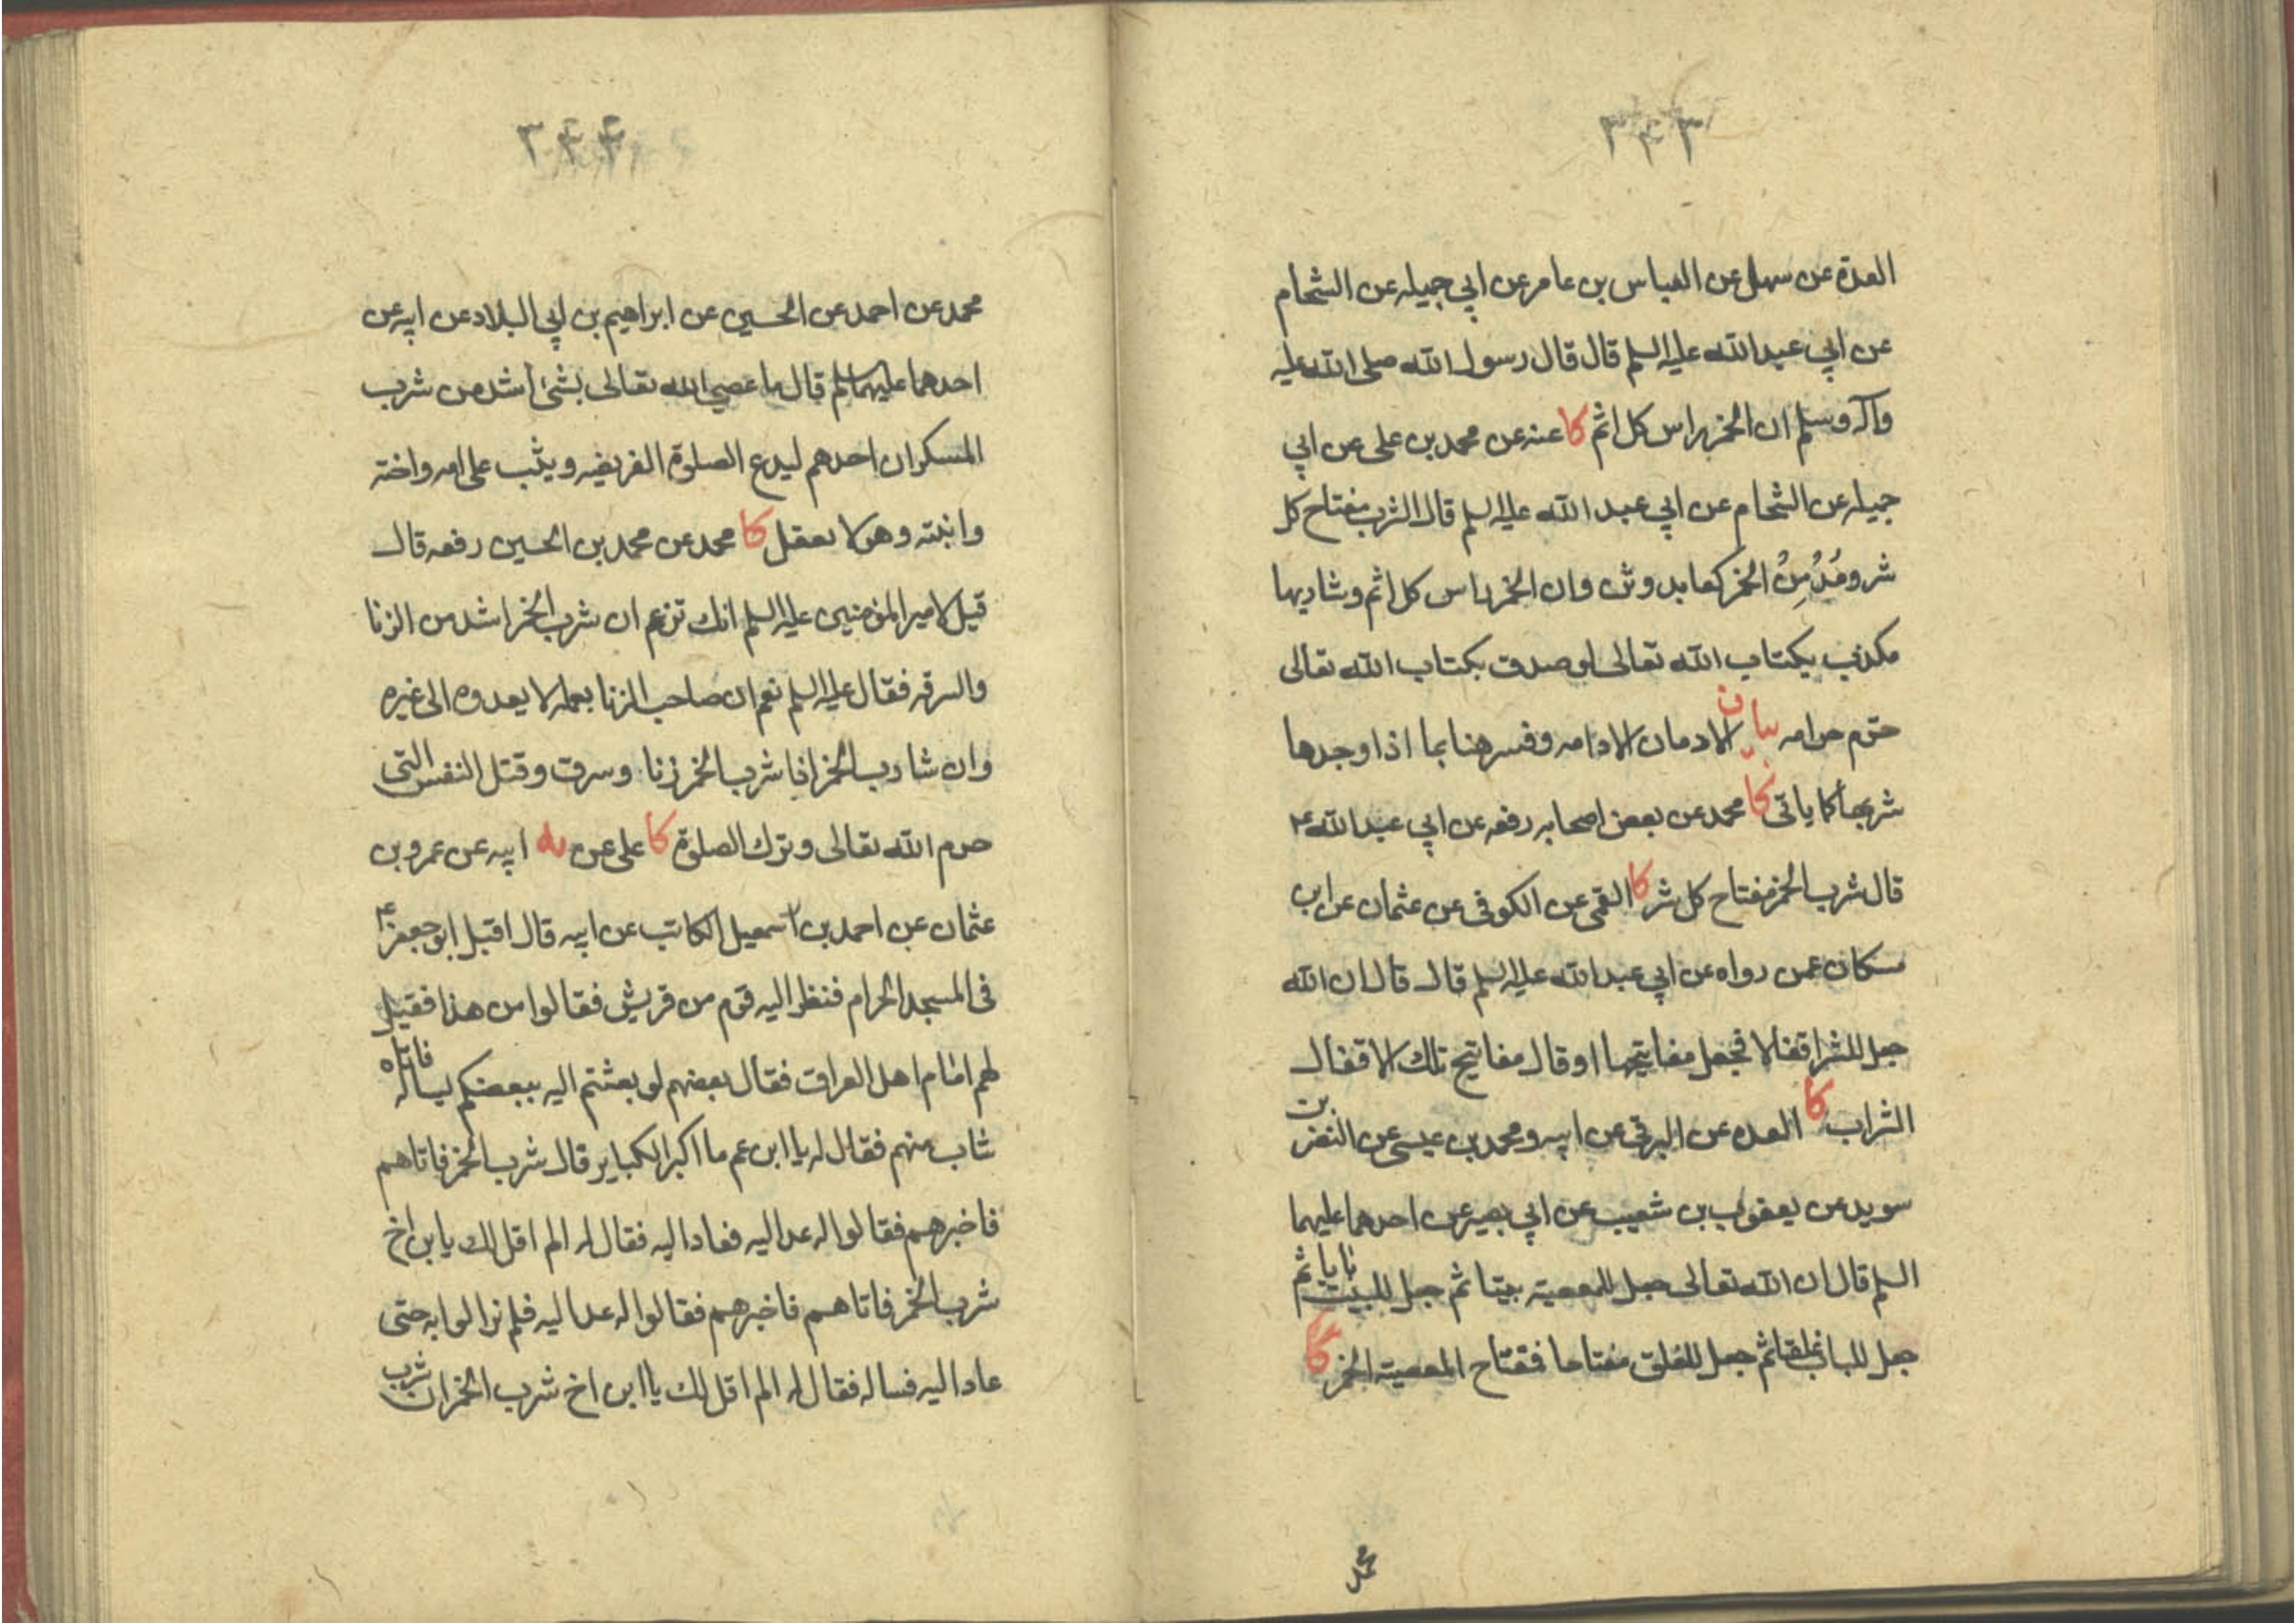 ٣٤٣
العدة عن سهل عن العباس بن عامر عن ابي جميله عن الشحام
عن ابي عبد الله عليه السلم قال قال رسول الله صلى الله عليه
وآله وسلم ان الخمر راس كل اثم كا عنه عن محمد بن على عن ابي
جميله عن الشحام عن ابي عبد الله عليه السلم قال الشرب مفتاح كل
شر ومُدْمِنُ الخمر كعابد وثن وان الخمر راس كل اثم وشاربها
مكذب بكتاب الله تعالى لو صدق بكتاب الله تعالى
حرم حرامه بيان الادمان الادامه وفسر هنا بما اذا وجدها
شربها كما ياتى كا محمد عن بعض اصحابه رفعه عن ابي عبد الله ع
قال شرب الخمر مفتاح كل شر كا القمى عن الكوفى عن عثمان عن ابن
مسكان عمن رواه عن ابي عبد الله عليه السلم قال قال ان الله
جعل للشر اقفالا فجعل مفاتيحها او قال مفاتيح تلك الاقفال
الشراب كا العده عن البرقى عن ابيه ومحمد بن عيسى عن النضر بن
سويد عن يعقوب بن شعيب عن ابي بصير عن احدهما عليهما
السلم قال ان الله تعالى جعل للمعصية بيتا ثم جعل للبيت بابا ثم
جعل للباب غلقا ثم جعل للغلق مفتاحا فمفتاح المعصية الخمر كا
محمد
٣٤٤
محمد عن احمد عن الحسين عن ابراهيم بن ابي البلاد عن ابيه عن
احدهما عليهما السلم قال ما عصي الله تعالى بشئ اشد من شرب
المسكر ان احدهم ليدع الصلوة الفريضه ويثب على امه واخته
وابنته وهو لا يعقل كا محمد عن محمد بن الحسين رفعه قال
قيل لامير المؤمنين عليه السلم انك تزعم ان شرب الخمر اشد من الزنا
والسرقه فقال عليه السلم نعم ان صاحب الزنا بعمله لا يعدوه الى غيره
وان شارب الخمر اذا شرب الخمر زنا وسرق وقتل النفس التى
حرم الله تعالى وترك الصلوة كا على عن ابيه عن عمرو بن
عثمان عن احمد بن اسمعيل الكاتب عن ابيه قال اقبل ابو جعفر ع
فى المسجد الحرام فنظر اليه قوم من قريش فقالوا من هذا فقيل
لهم امام اهل العراق فقال بعضهم لو بعثتم اليه ببعضكم يساله فاتاه
شاب منهم فقال له يا ابن عم ما اكبر الكباير قال شرب الخمر فاتاهم
فاخبرهم فقالوا له عد اليه فعاد اليه فقال له الم اقل لك يا بن اخ
شرب الخمر فاتاهم فاخبرهم فقالوا له عد اليه فلم يزالوا به حتى
عاد اليه فساله فقال له الم اقل لك يا ابن اخ شرب الخمر ان شرب